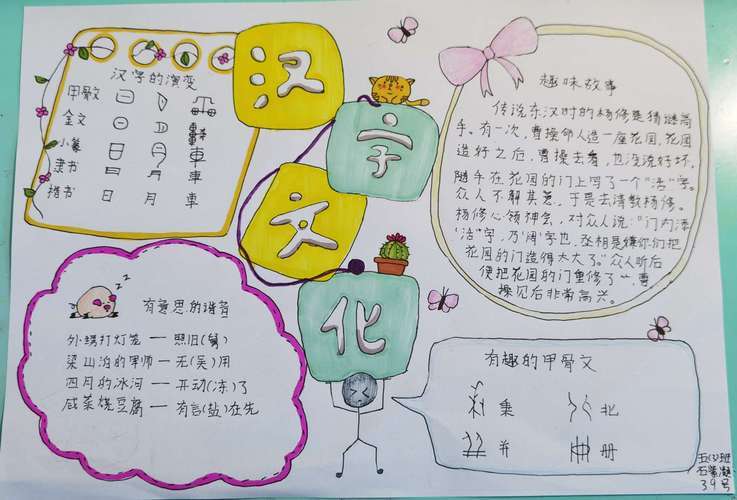 汉字文化
汉字的演变
甲骨文
金文 車
小篆 日 月 車
隶书 日 月 車
楷书 日 月 車
趣味故事
传说东汉时的杨修是猜谜高
手。有一次，曹操命人造一座花园，花园
造好之后，曹操去看，也没说好坏，
随手在花园的门上写了一个“活”字。
众人不解其意，于是去请教杨修。
杨修心领神会，对众人说：“门内添
‘活’字，乃‘阔’字也，丞相是嫌你们把
花园的门造得太大了。”众人听后
便把花园的门重修了一，曹
操见后非常高兴。
有意思的谐音
外甥打灯笼 — 照旧(舅)
梁山泊的军师 — 无(吴)用
四月的冰河 — 开动(冻)了
咸菜烧豆腐 — 有言(盐)在先
有趣的甲骨文
乘 北
并 册
五(3)班
39号